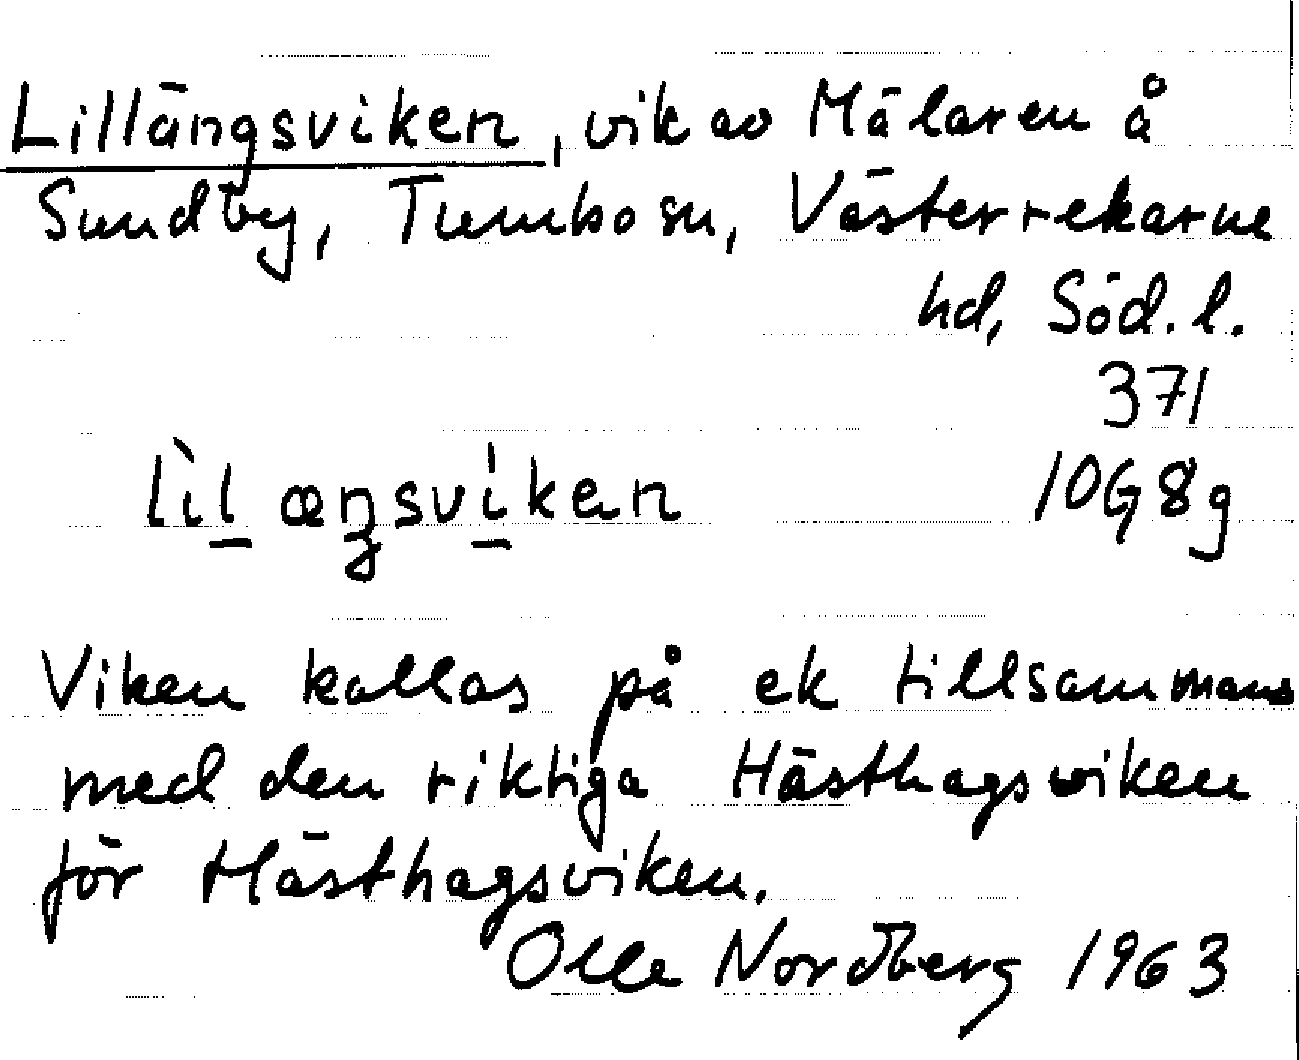 Lillängsviken, vik av Mälaren å
Sundby, Tumbo sn, Västerrekarne
hd, Söd. l.
371
lìl ængsvíken 10G 8g
Viken kallas på ek tillsammans
med den riktiga Hästhagsviken
för Hästhagsviken.
Olle Nordberg 1963